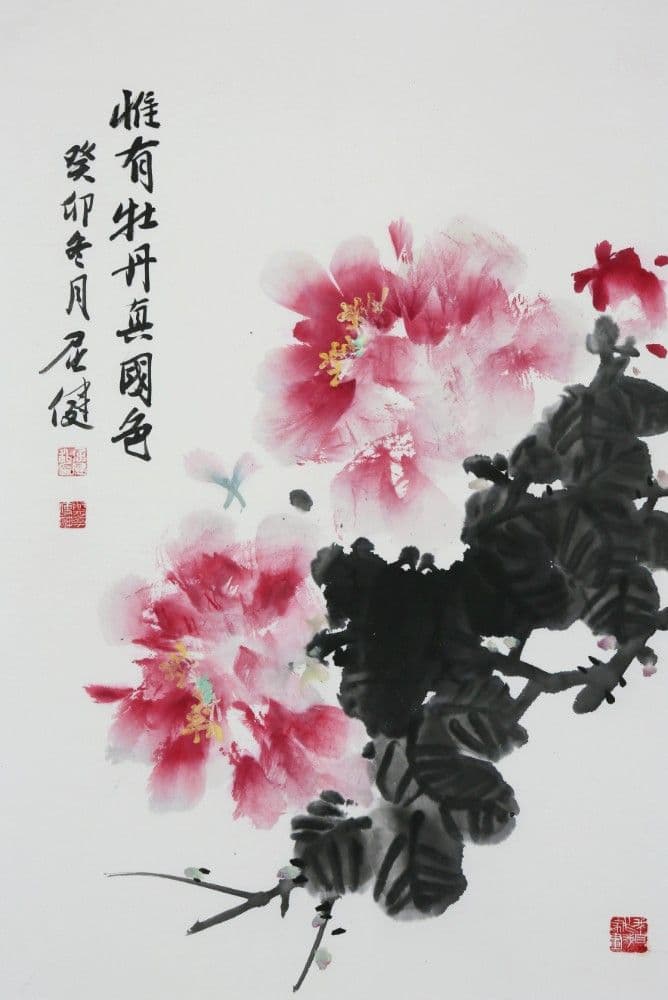 惟有牡丹真國色
癸卯冬月屈健